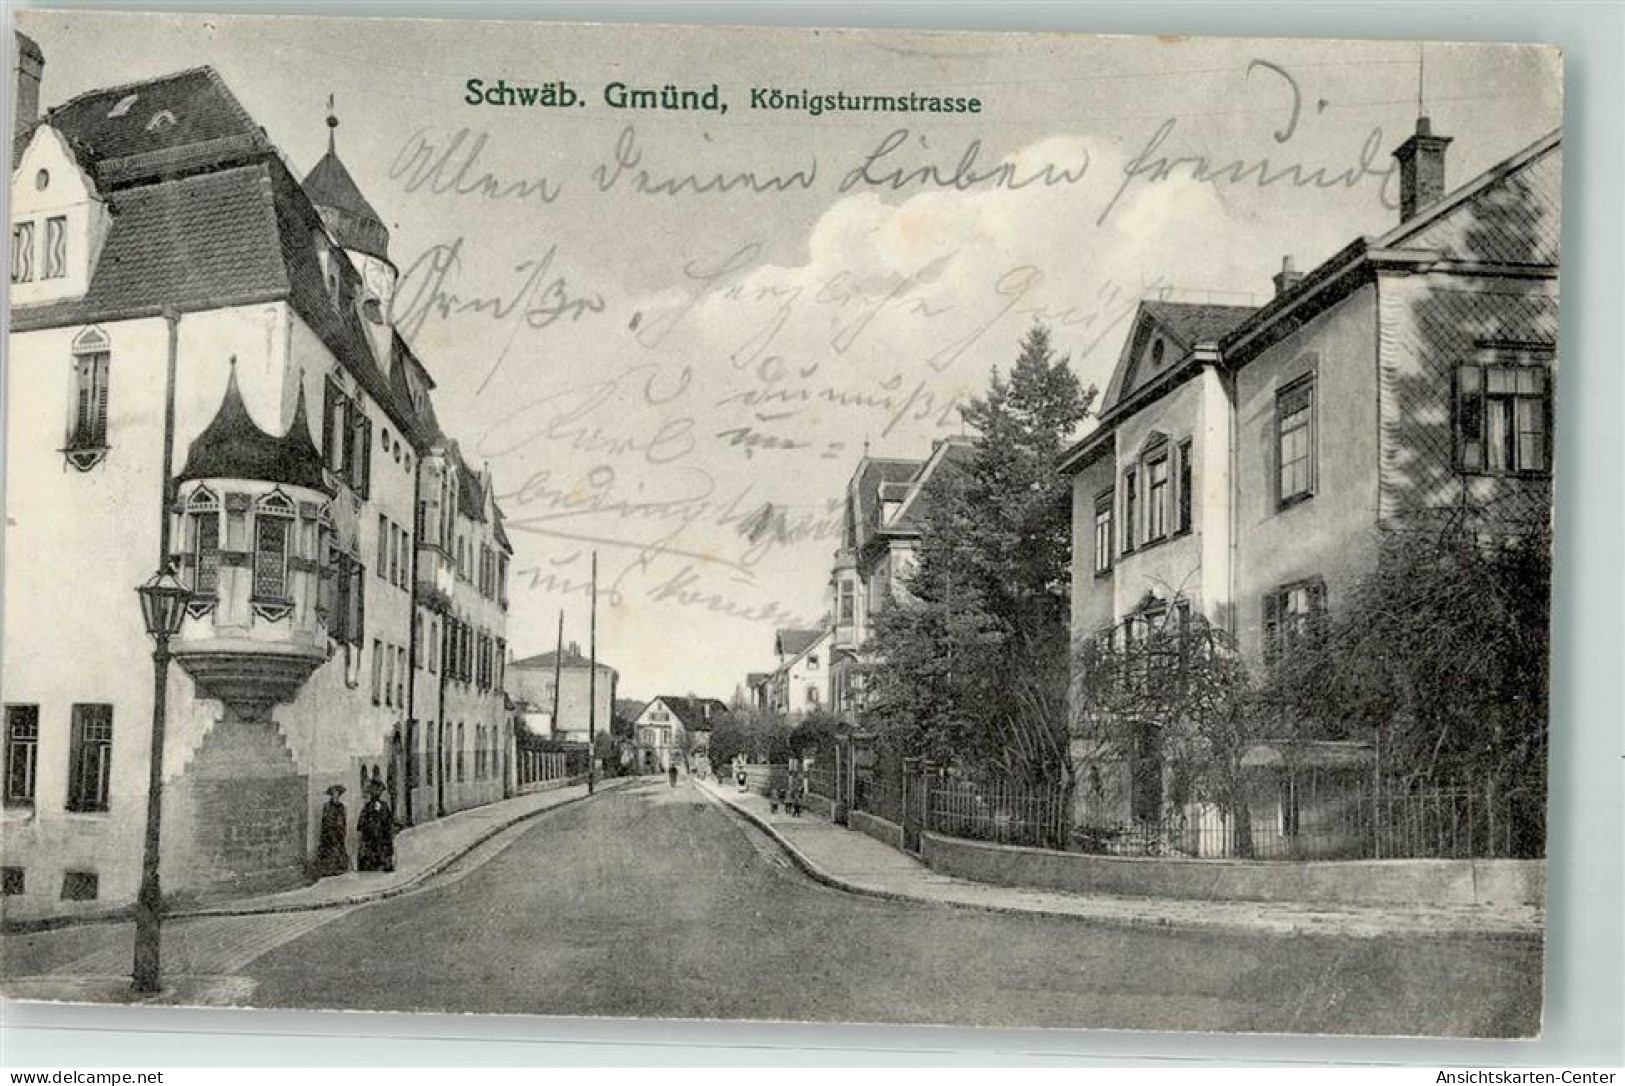 Schwäb. Gmünd, Königsturmstrasse
Allen deinen Lieben freund
Grüße. Herzliche Grüße
Karl du mußt
un=
bedingt
uns
delcampe.net
Ansichtskarten-Center